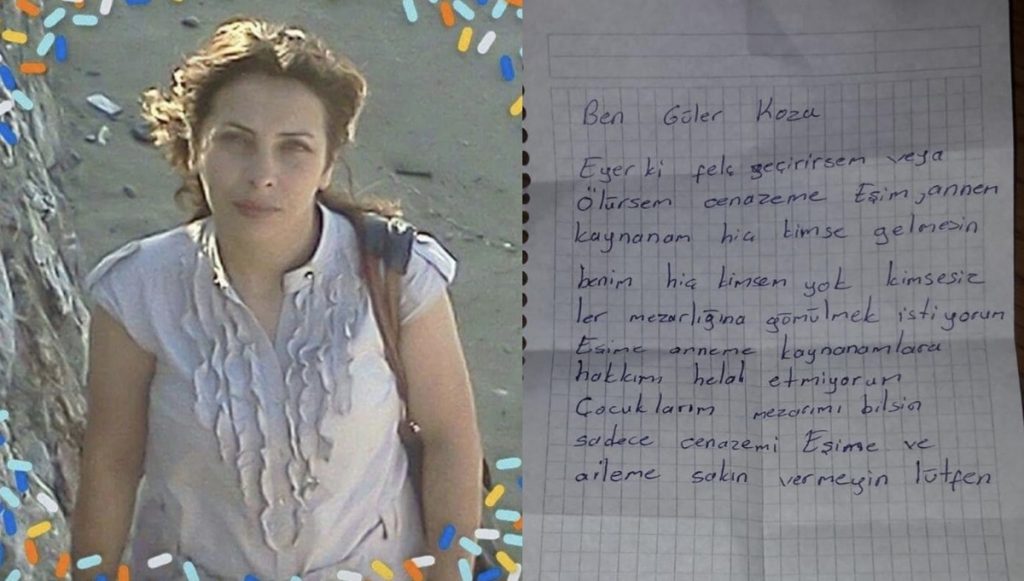 Ben Güler Koza
Eğer ki felç geçirirsem veya
Ölürsem cenazeme Eşim, annem
kaynanam hiç kimse gelmesin
benim hiç kimsem yok kimsesiz
ler mezarlığına gömülmek istiyorum
Eşime anneme kaynanamlara
hakkımı helal etmiyorum
Çocuklarım mezarımı bilsin
sadece cenazemi Eşime ve
aileme sakın vermeyin lütfen